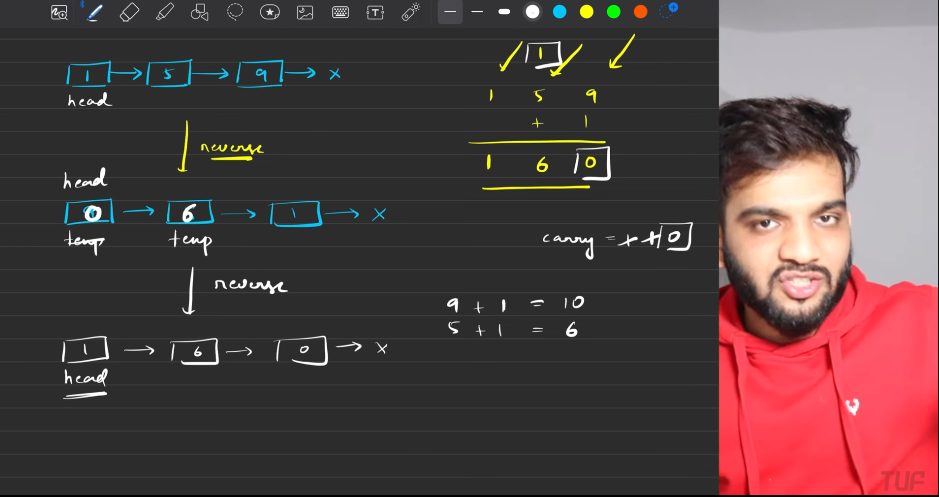 1 → 5 → 9 → x
head
reverse
head
0 → 6 → 1 → x
temp temp
reverse
1 → 6 → 0 → x
head
1
1 5 9
+ 1
1 6 0
carry = 0
9 + 1 = 10
5 + 1 = 6
TUF